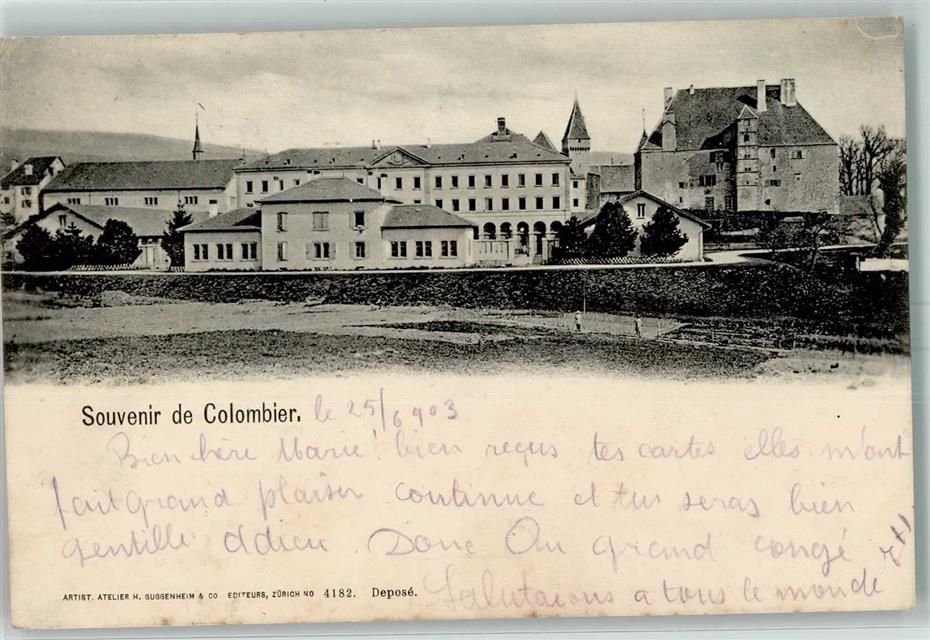 Souvenir de Colombier. le 25/6 903
Bien chère Marie! bien reçus tes cartes elles m'ont
fait grand plaisir continue et tu seras bien
gentille adieu Donc Au grand congé
ARTIST. ATELIER H. GUGGENHEIM & CO EDITEURS, ZÜRICH NO 4182. Deposé.
Salutaions a tous le monde